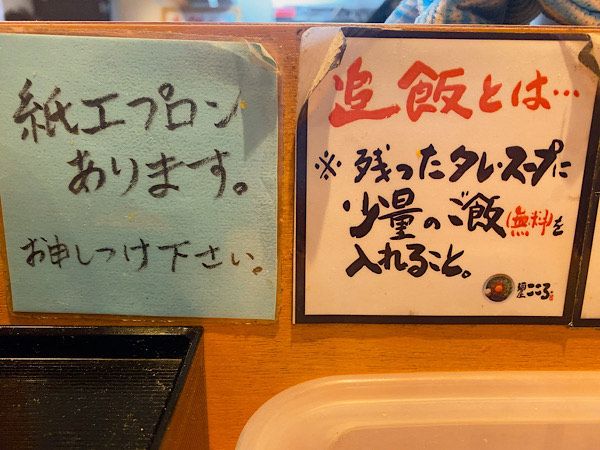 紙エプロン
あります。
お申しつけ下さい。
追飯とは…
※残ったタレ・スープに
少量のご飯(無料)を
入れること。
こころ